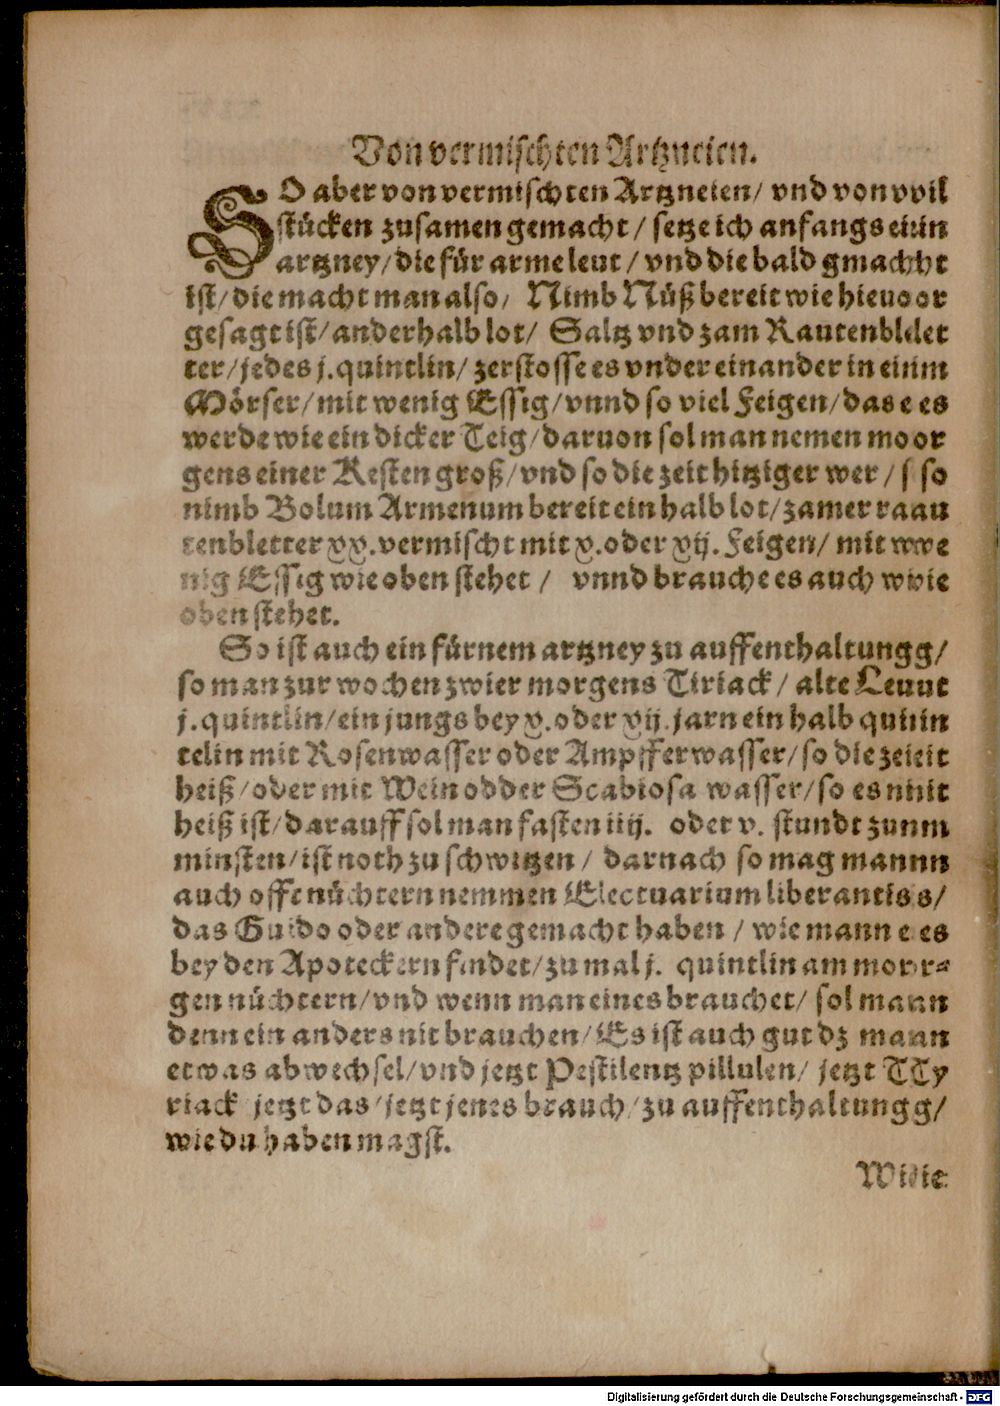 Von vermischten Artzneien.
SO aber von vermischten Artzneien/ vnd von vvil
stücken zusamen gemacht / setze ich anfangs eiin
artzney/die für arme leut / vnd die bald gmachht
ist/die macht man also/ Nimb Nüß bereit wie hieuoor
gesagt ist/anderhalb lot/ Saltz vnd zam Rautenbldet
ter/jedes j.quintlin/ zerstosse es vnder einander in eiim
Mörser/mit wenig Essig/vnnd so viel Feigen/das e es
werde wie ein dicker Teig/daruon sol man nemen moor
gens einer Kesten groß/vnd so die zeit hitziger wer / s so
nimb Bolum Armenum bereit ein halb lot/zamer raau
tenbletter xx.vermischt mit x.oder xij. Feigen/ mit wwe
nig Essig wie oben stehet / vnnd brauche es auch wwie
oben stehet.
So ist auch ein fürnem artzney zu auffenthaltungg/
so man zur wochen zwier morgens Tiriack / alte Leuut
j.quintlin/ein jungs bey x.oder xij.jarn ein halb quiin
telin mit Rosenwasser oder Ampfferwasser/so die zeieit
heiß/oder mit Wein odder Scabiosa wasser/so es nnit
heiß ist/darauff sol man fasten iiij. oder v. stundt zunm
minsten/ist noth zu schwitzen / darnach so mag mannn
auch offt nüchtern nemmen Electuarium liberantis s/
das Guido oder andere gemacht haben / wie mann e es
bey den Apoteckern findet/zumal j. quintlin am morr-
gen nüchtern/vnd wenn man eines brauchet/ sol mann
denn ein anders nit brauchen/Es ist auch gut dz mann
etwas abwechsel/vnd jetzt Pestilentz pillulen/ jetzt TTy
riack jetzt das/jetzt jenes brauch/zu auffenthaltungg/
wie du haben magst.
Wiie
Digitalisierung gefördert durch die Deutsche Forschungsgemeinschaft - DFG